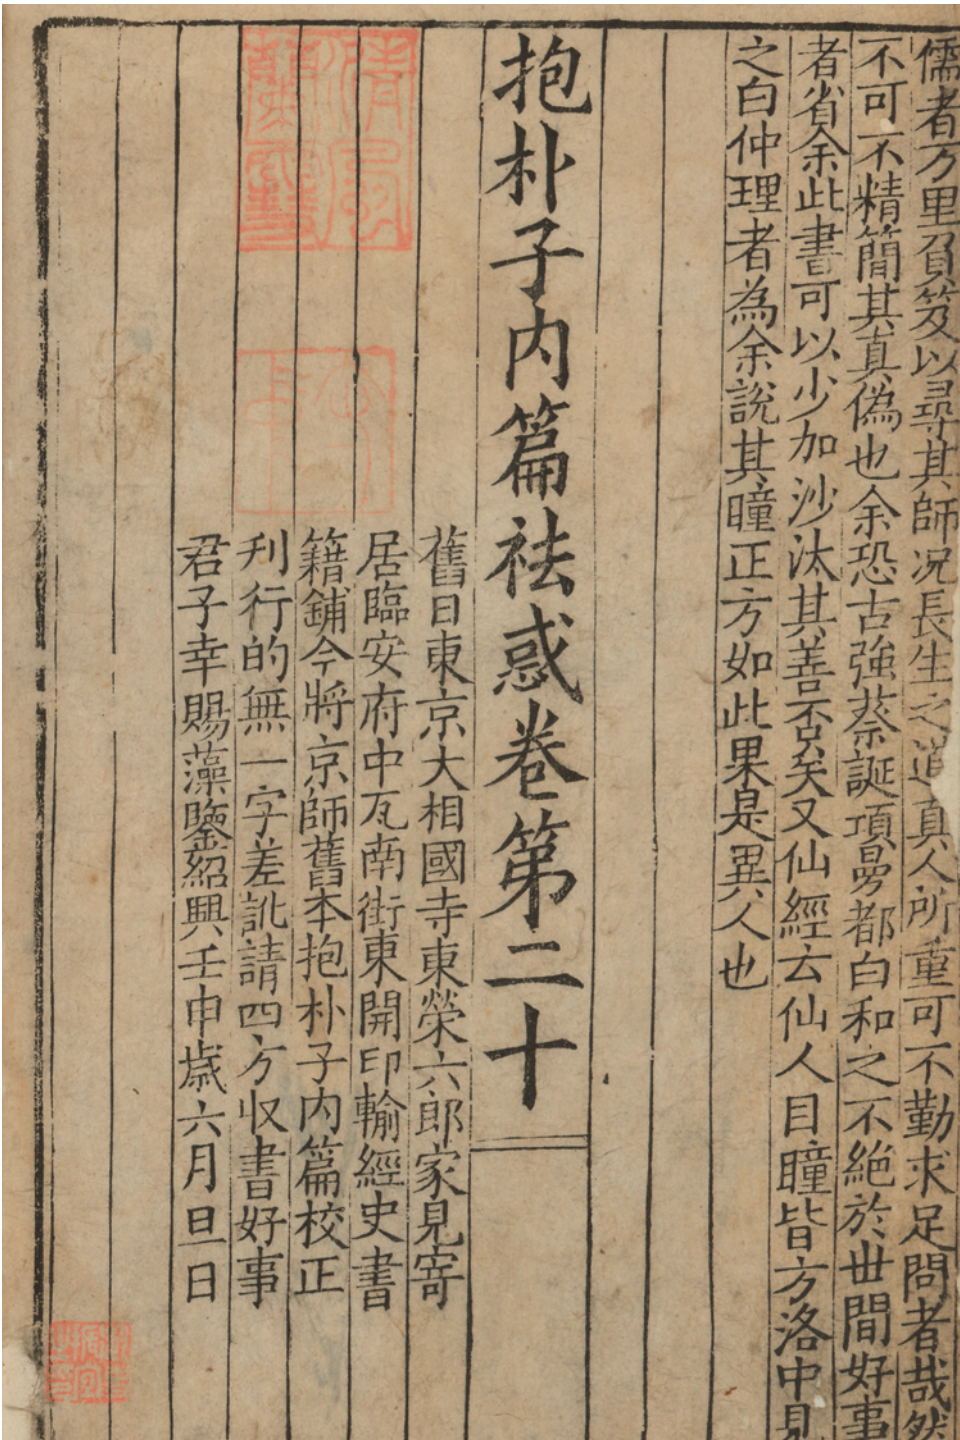 儒者万里負笈以尋其師况長生之道真人所重可不勤求足問者哉然
不可不精簡其真偽也余恐古強蔡誕項曼都白和之不絶於世間好事
者省余此書可以少加沙汰其善否矣又仙經云仙人目瞳皆方洛中見
之白仲理者為余說其瞳正方如此果是異人也
抱朴子内篇祛惑卷第二十
舊日東京大相國寺東榮六郎家見寄
居臨安府中瓦南街東開印輸經史書
籍鋪今將京師舊本抱朴子内篇校正
刋行的無一字差訛請四方収書好事
君子幸賜藻鑒紹興壬申歳六月旦日
清風
蘭雪